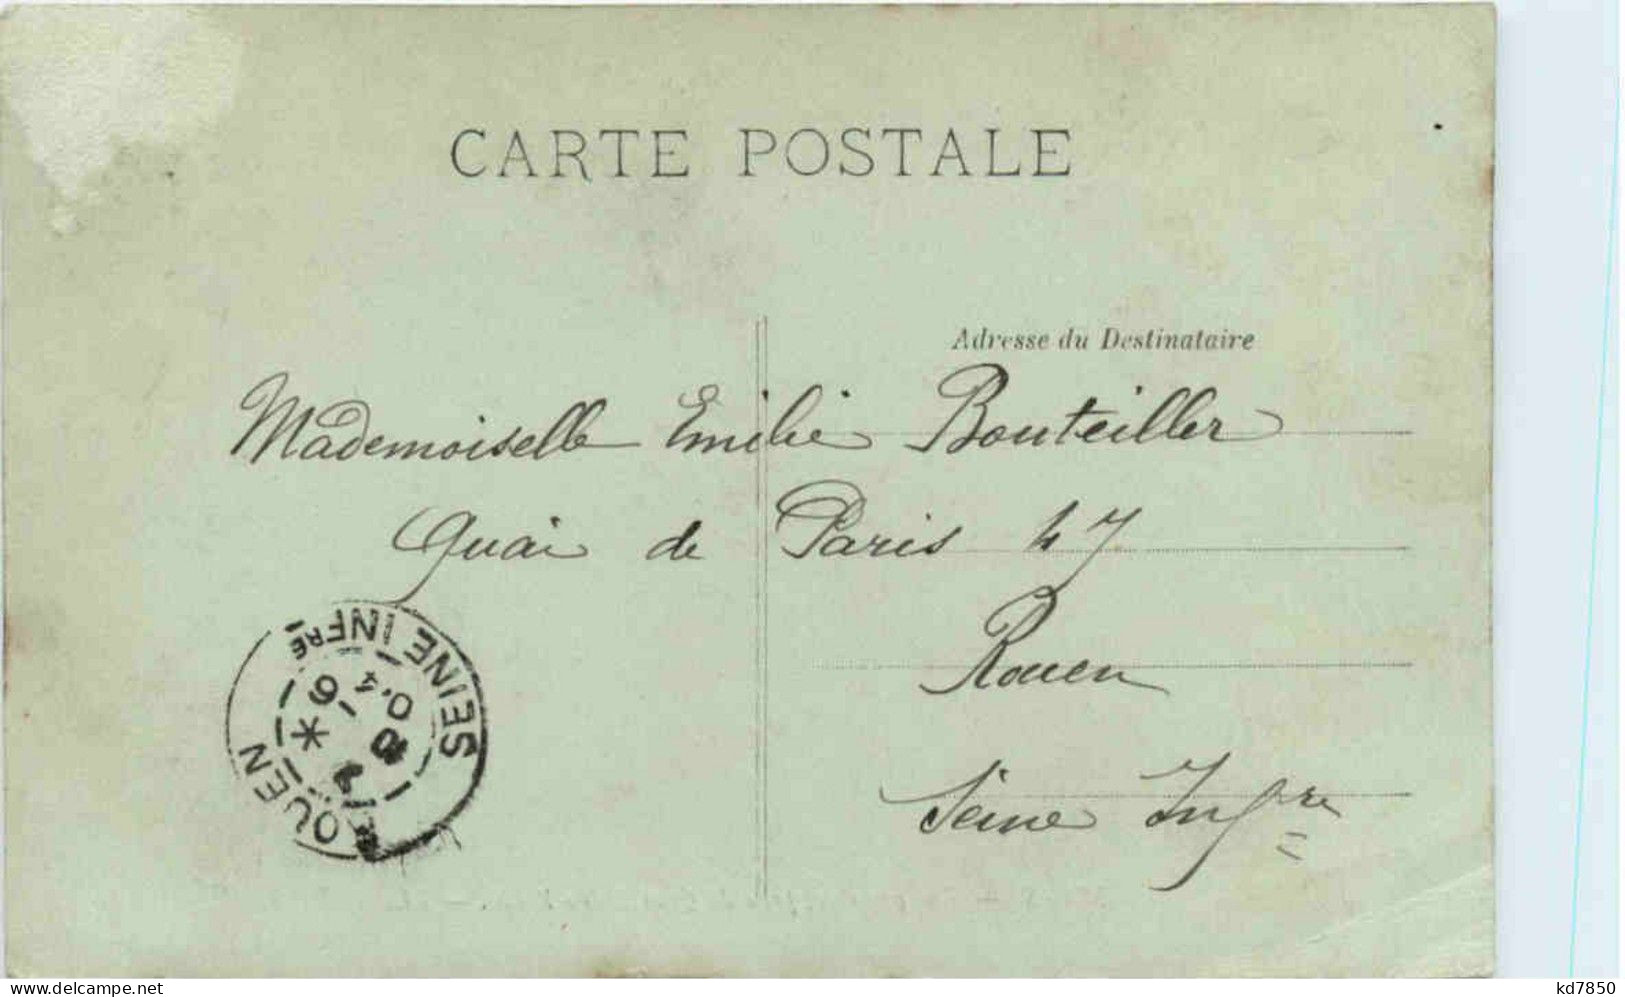 CARTE POSTALE
Adresse du Destinataire
Mademoiselle Emilie Bouteiller
Quai de Paris 47
Rouen
Seine Infre
ROUEN SEINE INFRE
www.delcampe.net
kd7850